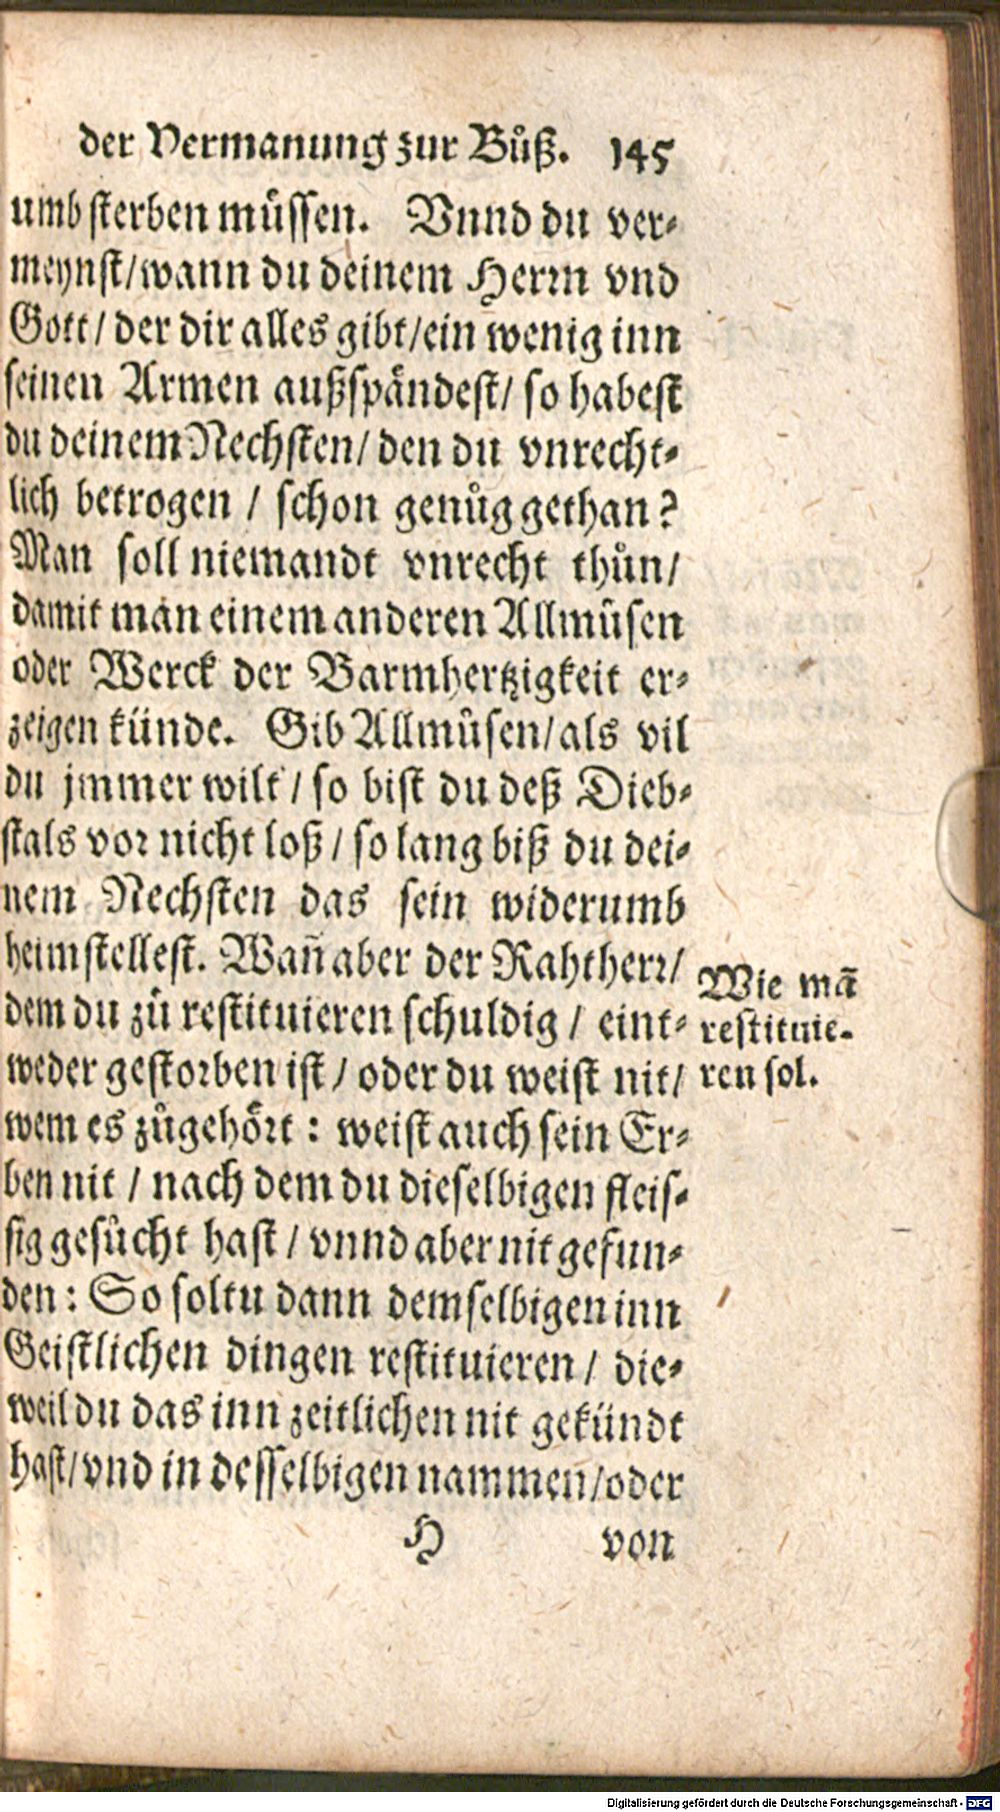 der Vermanung zur Bůß. 145
umb sterben müssen. Vnnd du ver-
meynst/wann du deinem Herrn vnd
Gott/ der dir alles gibt/ein wenig inn
seinen Armen außspändest/ so habest
du deinem Nechsten/ den du vnrecht-
lich betrogen / schon genůg gethan?
Man soll niemandt vnrecht thůn/
damit man einem anderen Allmůsen
oder Werck der Barmhertzigkeit er-
zeigen künde. Gib Allmůsen/als vil
du jmmer wilt / so bist du deß Dieb-
stals vor nicht loß / so lang biß du dei-
nem Nechsten das sein widerumb
heimstellest. Wañ aber der Rahtherr/
dem du zů restituieren schuldig / eint-
weder gestorben ist / oder du weist nit/
wem es zůgehört : weist auch sein Er-
ben nit / nach dem du dieselbigen fleis-
sig gesůcht hast / vnnd aber nit gefun-
den : So soltu dann demselbigen inn
Geistlichen dingen restituieren / die-
weil du das inn zeitlichen nit gekündt
hast/vnd in desselbigen nammen/oder
H von
Wie mã
restituie-
ren sol.
Digitalisierung gefördert durch die Deutsche Forschungsgemeinschaft - DFG